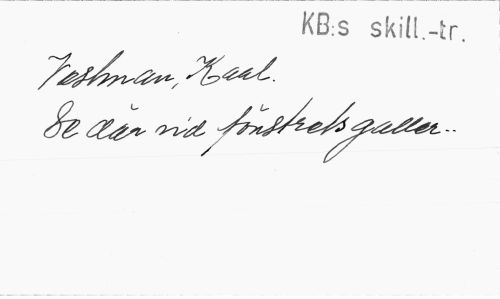 KB:s skill.-tr.
Vestman, Kaal.
Se där vid fönstrets galler..